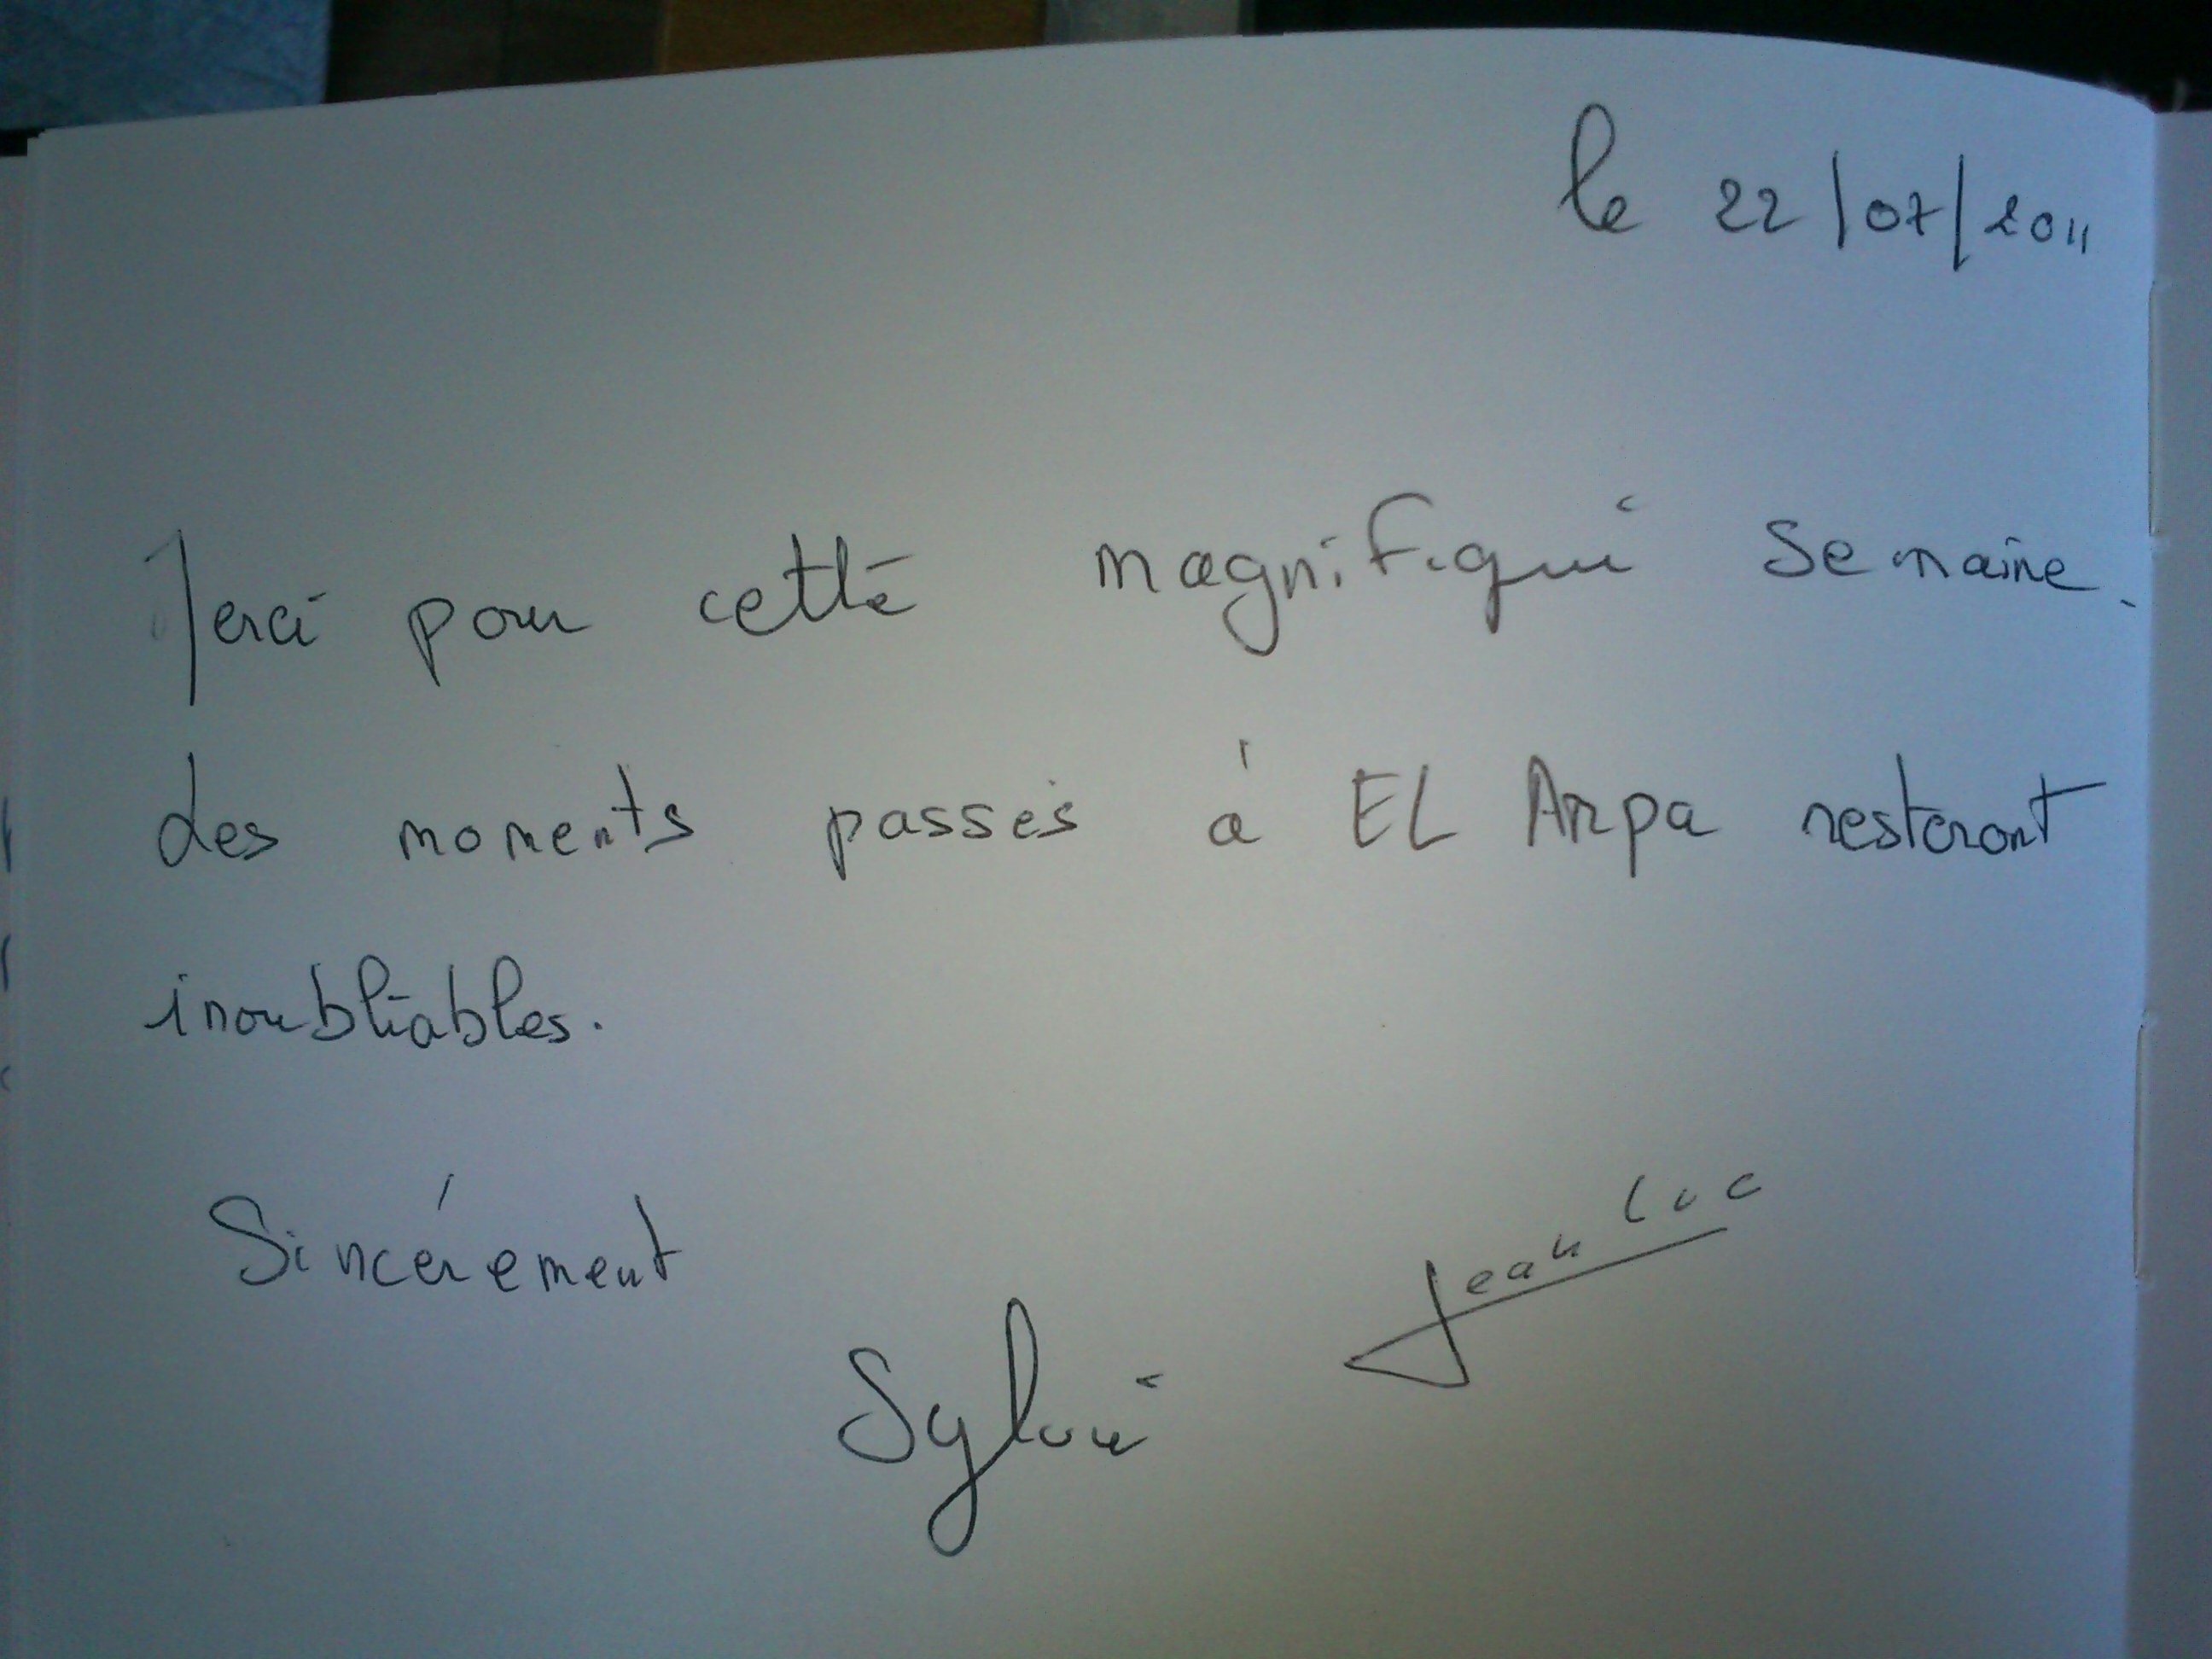 le 22/07/2011
Merci pour cette magnifique semaine.
des moments passés à EL Arpa resteront
inoubliables.
Sincérement
Jean Luc
Sylvie